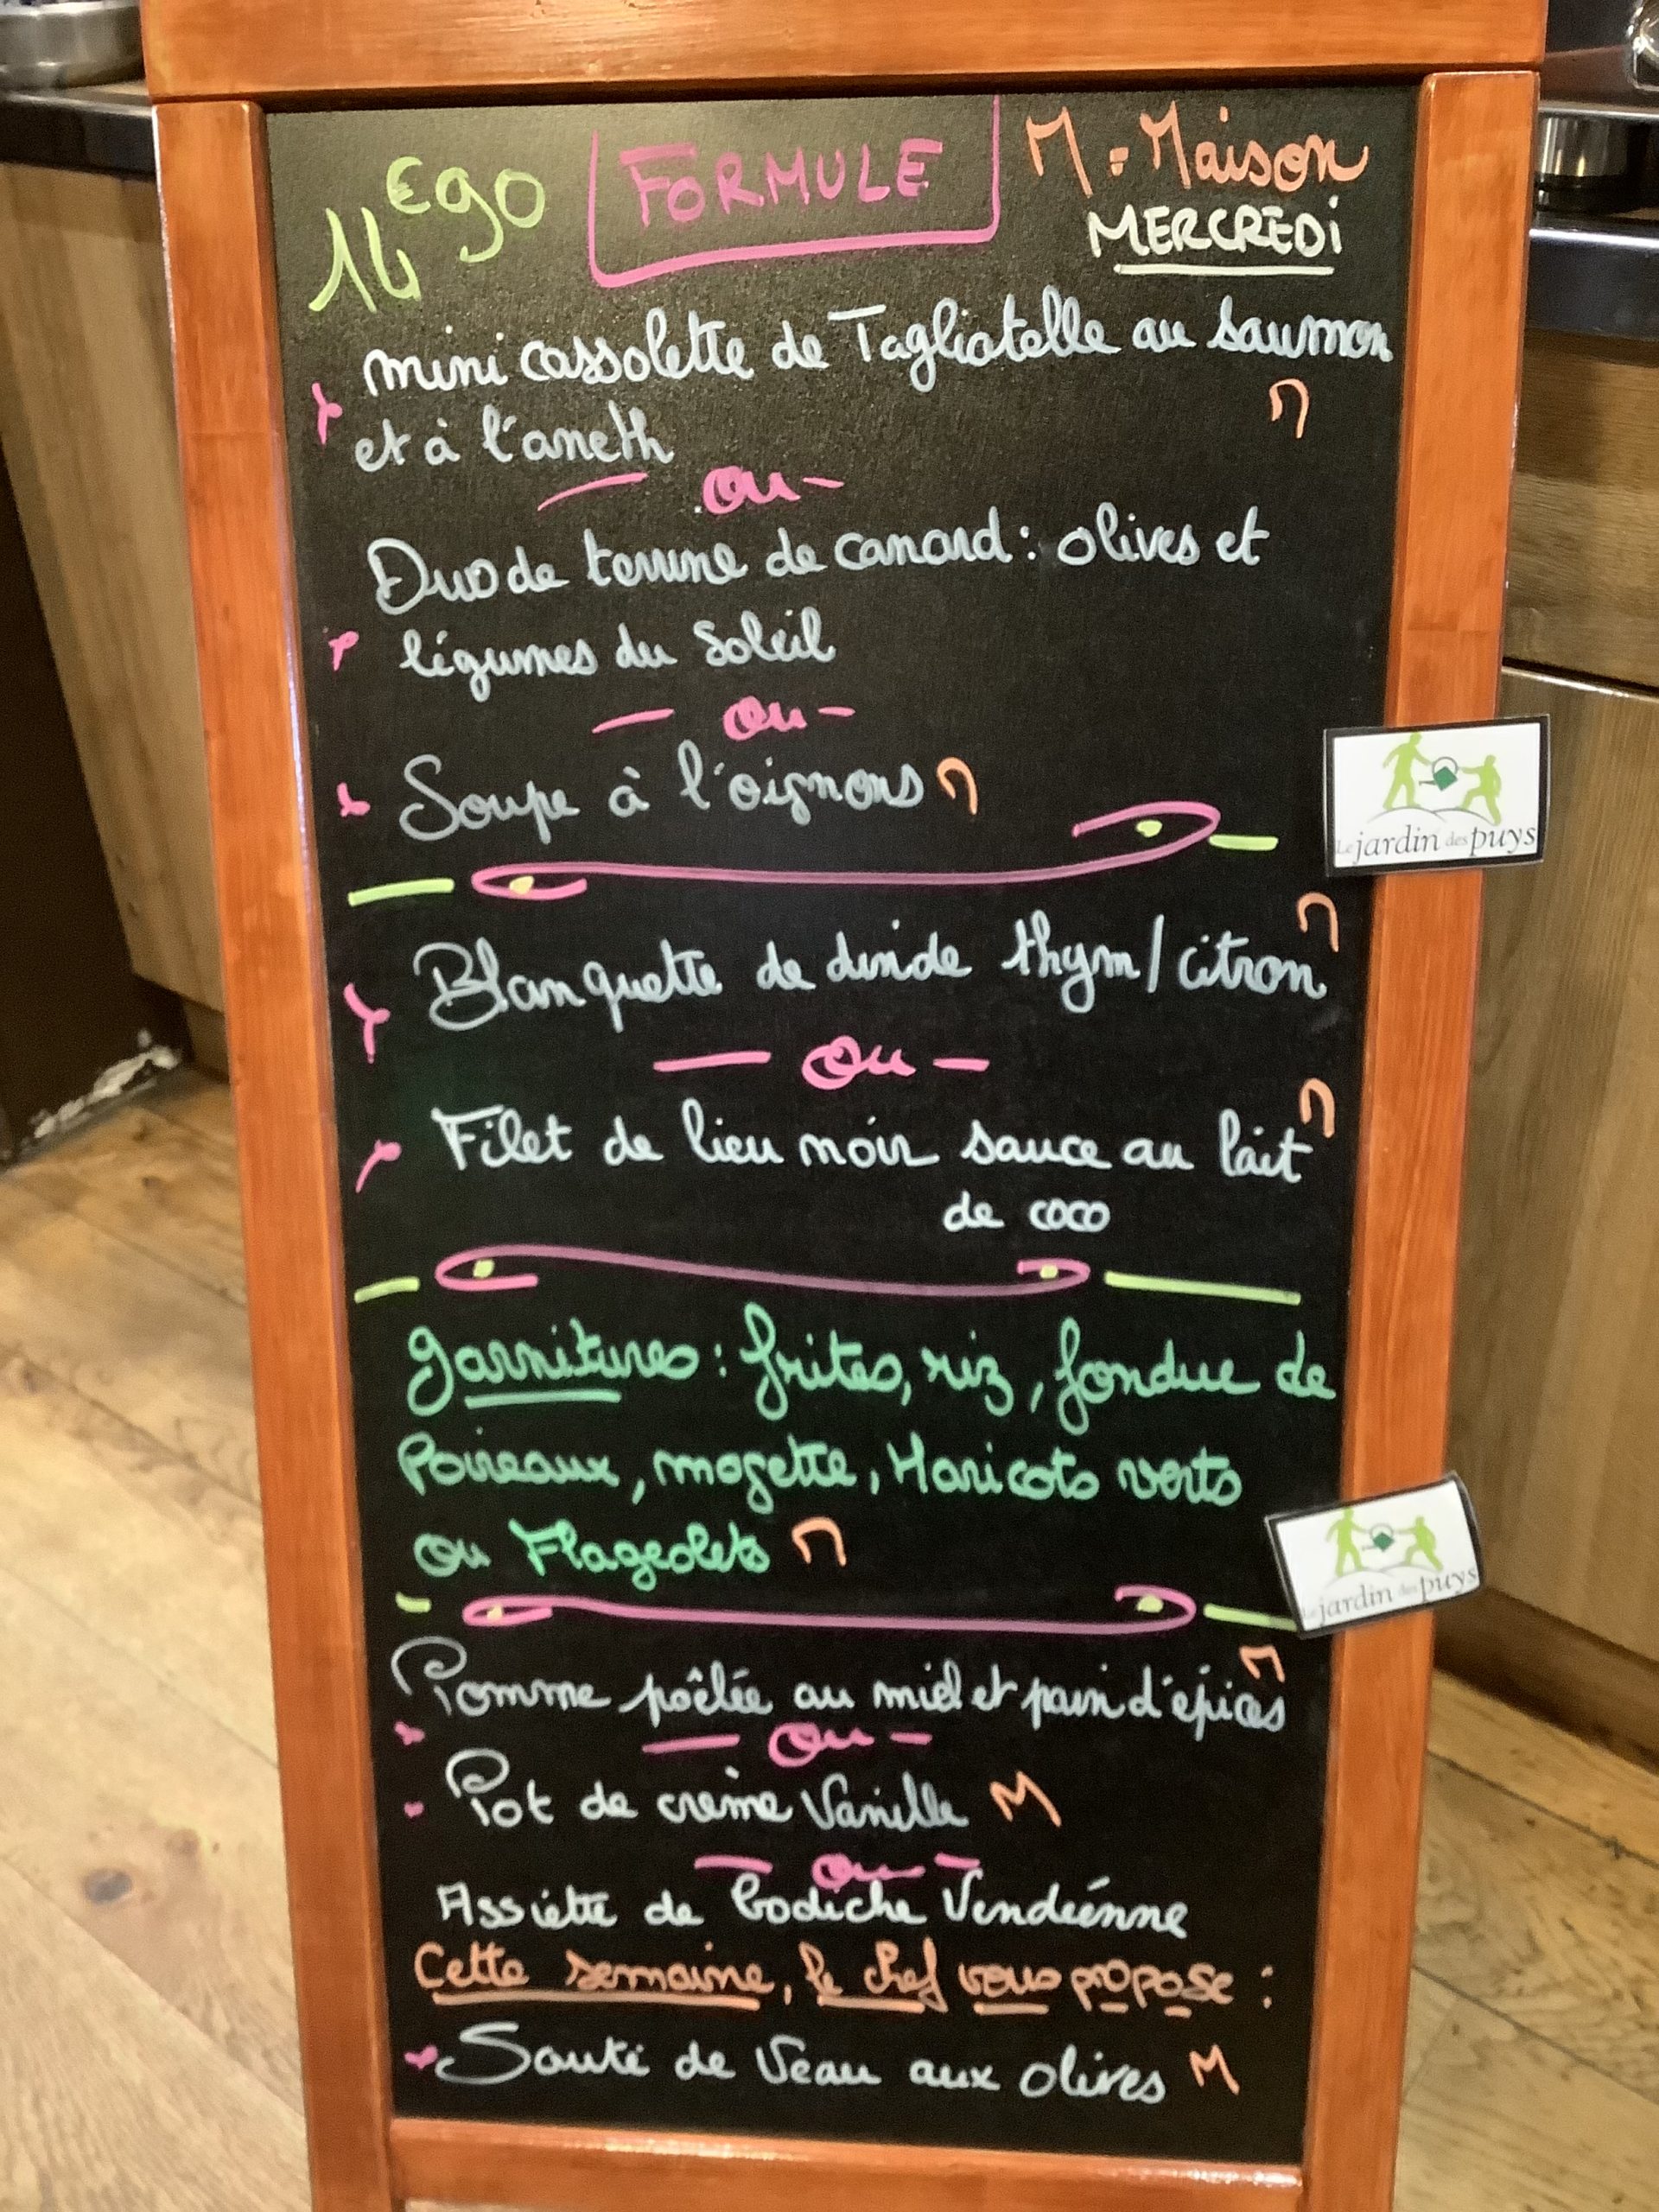 14€90 FORMULE M = Maison
MERCREDI
mini cassolette de Tagliatelle au saumon
et à l'aneth M
- ou -
Duo de terrine de canard : olives et
légumes du Soleil
- ou -
Soupe à l'oignons M
Le jardin des puys
M
Blanquette de dinde thym / citron
- ou -
Filet de lieu noir sauce au lait M
de coco
garnitures : frites, riz, fondue de
Poireaux, mogette, Haricots verts
ou Flageolets M
Le jardin des puys
Pomme poêlée au miel et pain d'épices M
- ou -
Pot de crème Vanille M
- ou -
Assiette de Godiche Vendéenne
Cette semaine, le chef vous propose :
Sauté de Veau aux olives M